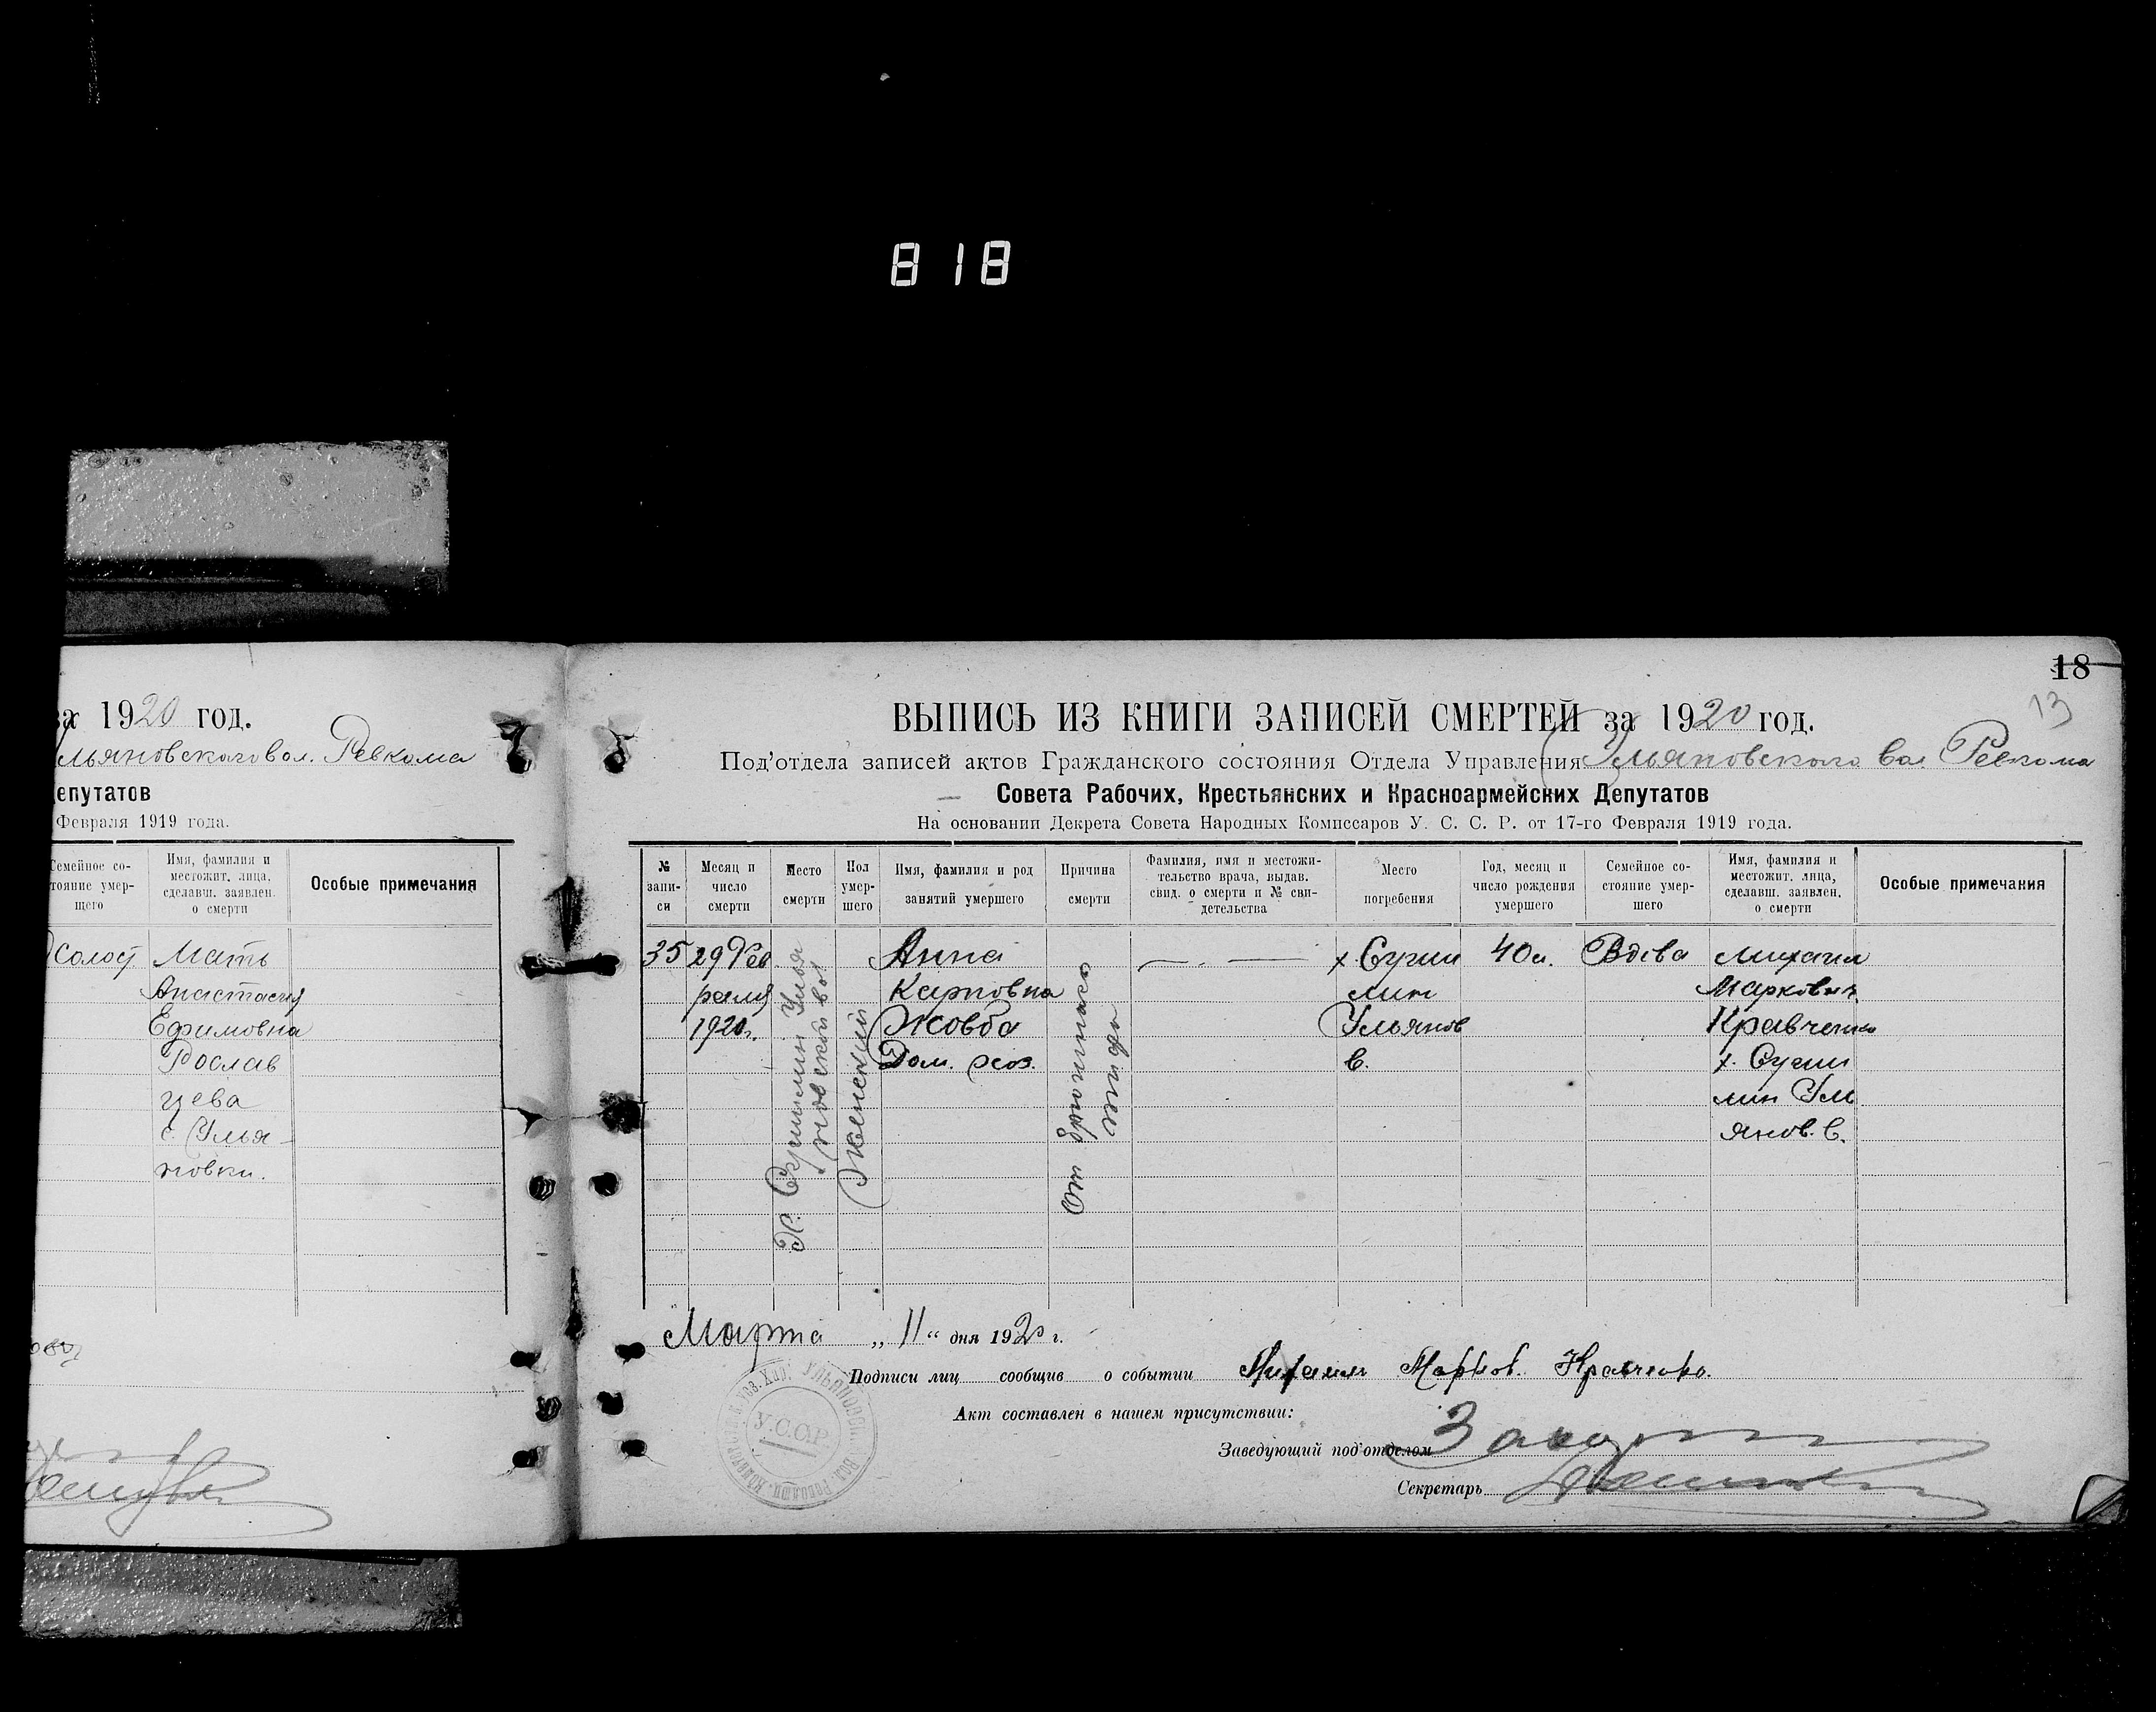 818
за 1920 год.
льяновского вол. Ревкома
епутатов
Февраля 1919 года.
Семейное со-
тояние умер-
щего
Имя, фамилия и
местожит. лица,
сделавш. заявлен.
о смерти
Особые примечания
Холост
Мать
Анастасия
Ефимовна
Рослав
цева
с. Улья-
новки.
18
13
ВЫПИСЬ ИЗ КНИГИ ЗАПИСЕЙ СМЕРТЕЙ за 1920 год.
Под'отдела записей актов Гражданского состояния Отдела Управления Ульяновского вол. Ревкома
Совета Рабочих, Крестьянских и Красноармейских Депутатов
На основании Декрета Совета Народных Комиссаров У. С. С. Р. от 17-го Февраля 1919 года.
№
запи-
си
Месяц и
число
смерти
Место
смерти
Пол
умер-
шего
Имя, фамилия и род
занятий умершего
Причина
смерти
Фамилия, имя и местожи-
тельство врача, выдав.
свид. о смерти и № сви-
детельства
Место
погребения
Год, месяц и
число рождения
умершего
Семейное со-
стояние умер-
шего
Имя, фамилия и
местожит. лица,
сделавш. заявлен.
о смерти
Особые примечания
35
29 Фев
раля
1920г.
Х. Сушилин Улья
новской вол
Женский
Анна
Карповна
Жовба
Дом. хоз.
От брюшного
тифа
х. Суши
лин
Ульянов
в.
40 л.
Вдова
Михаил
Маркович
Кравченко
х. Суши
лин Уль
янов. в.
Марта „ 11 “ дня 1920 г.
Подписи лиц сообщив о событии Михаил Марков. Кравченко.
Акт составлен в нашем присутствии:
Заведующий под'отделом
Секретарь
У.С.С.Р.